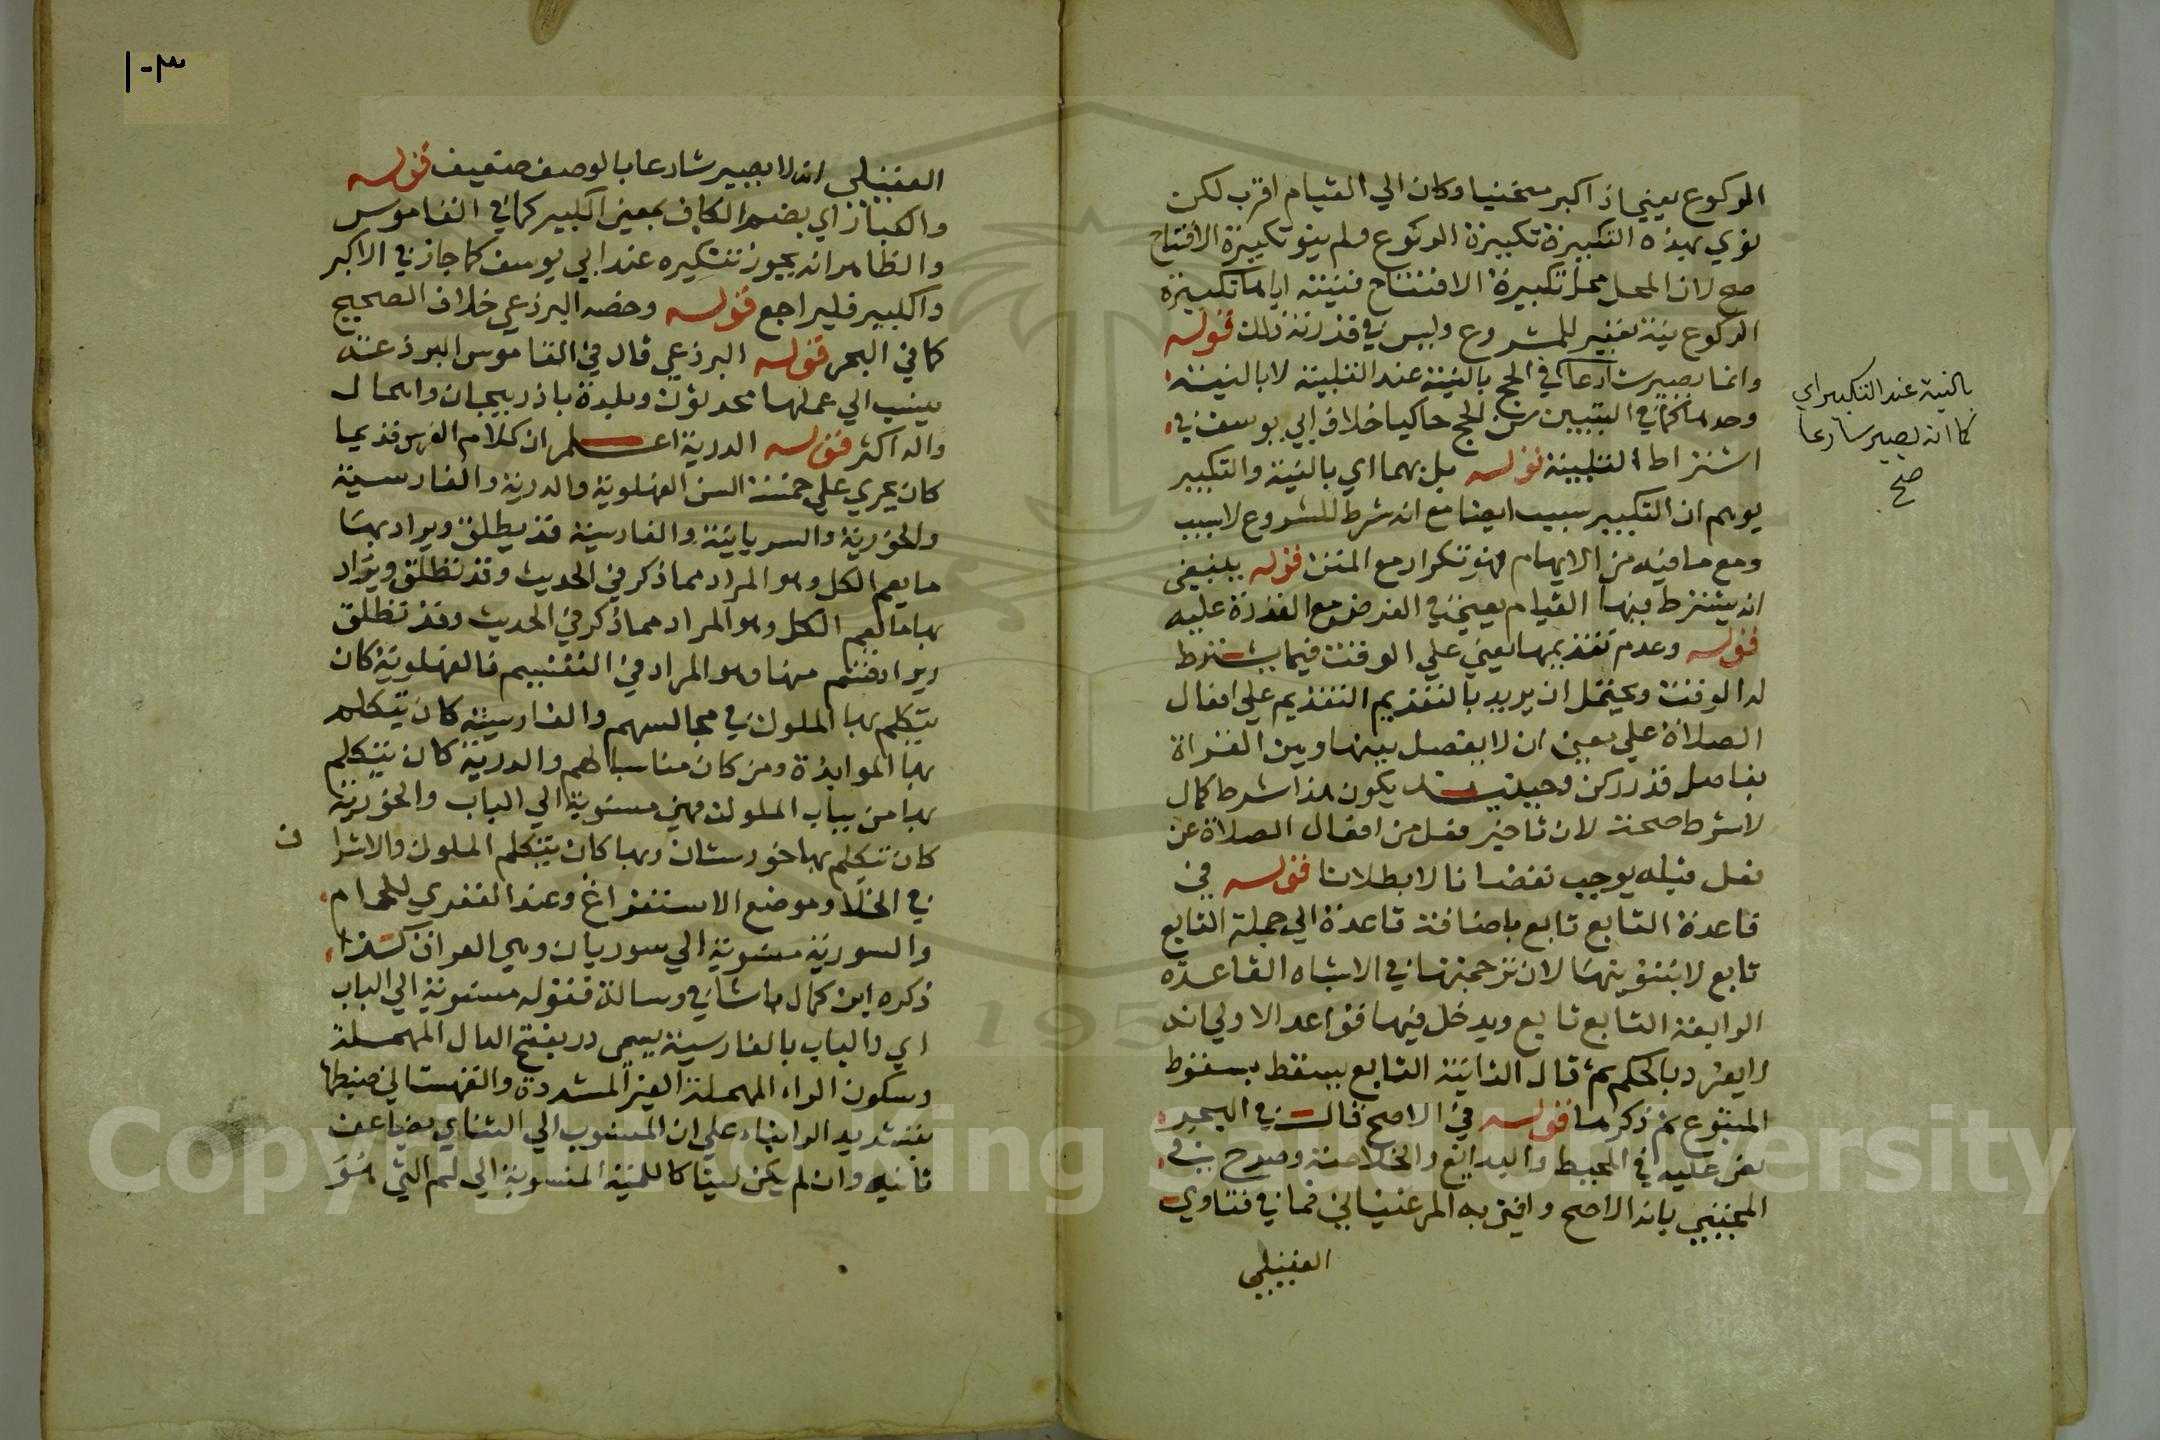 الركوع يعني اذا كبر منحنيا وكان الي القيام اقرب لكن
نوي بهذه التكبيرة تكبيرة الركوع ولم ينو تكبيرة الافتتاح
صح لان المحل محل تكبيرة الافتتاح فنيته اياها تكبيرة
الركوع نية تغيير للمشروع وليس في قدرته ذلك قوله
وانما يصير شارعا في الحج بالنية عند التلبية لا بالنية
وحدها كما في التبيين من الحج حاكيا خلاف ابي يوسف في
اشتراط التلبية قوله بل بهما اي بالنية والتكبير
يوهم ان التكبير سبب ايضا مع انه شرط للشروع لا سبب
ومع ما فيه من الايهام فهو تكرار مع المتن قوله ينبغي
انه يشترط فيها القيام يعني في الفرض مع القدرة عليه
قوله وعدم تقديمها يعني علي الوقت فيما يشترط
له الوقت ويحتمل ان يريد بالتقديم التقديم علي افعال
الصلاة علي معني ان لا يفصل بينها وبين القراة
بفاصل قدر ركن وحينئذ يكون هذا شرط كمال
لا شرط صحة لان تاخير فعل من افعال الصلاة عن
فعل قبله يوجب نقصانا لا بطلانا قوله في
قاعدة التابع تابع باضافة قاعدة الي جملة التابع
تابع لا بتنوينها لان ترجمتها في الاشباه القاعدة
الرابعة التابع تابع ويدخل فيها قواعد الاولي انه
لا يفرد بالحكم ثم قال الثانية التابع يسقط بسقوط
المتبوع ثم ذكرها قوله في الاصح قال في البحر
نص عليه في المحيط والبدايع والخلاصة وصرح في
المجتبي بانه الاصح وافتي به المرغيناني فما في فتاوي
الفضلي
بالنية عند التكبير اي
كما انه يصير شارعا
صح
١٠٣
الفضلي انه لا يصير شارعا بالوصف ضعيف قوله
والكبار اي بضم الكاف بمعني الكبير كما في القاموس
والظاهر انه يجوز تنكيره عند ابي يوسف كما جاز في الاكبر
والكبير فليراجع قوله وخصه البردعي خلاف الصحيح
كما في البحر قوله البردعي قال في القاموس البردعة
ينسب الي عملها محدثون وبلدة باذربيجان واهمال
داله اكثر قوله الدرية اعلم ان كلام الفرس قديما
كان يجري علي خمسة السن الفهلوية والدرية والفارسية
والخوزية والسريانية والفارسية قد يطلق ويراد بها
ما يعم الكل وهو المراد مما ذكر في الحديث وقد تطلق ويراد
بها ما يعم الكل وهو المراد مما ذكر في الحديث وقد تطلق
ويراد قسم منها وهو المراد في التقسيم فالفهلوية كان
يتكلم بها الملوك في مجالسهم والفارسية كان يتكلم
بها الموابذة ومن كان مناسبا لهم والدرية كان يتكلم
بها من بباب الملوك فهي منسوبة الي الباب والخوزية
كان يتكلم بها خوزستان وبها كان يتكلم الملوك والاشرا
ف
في الخلا وموضع الاستفراغ وعند التعري للحمام
والسورية منسوبة الي سوريان وهي العراق كذا
ذكره ابن كمال باشا في رسالة فقوله منسوبة الي الباب
اي والباب بالفارسية يسمي در بفتح الدال المهملة
وسكون الراء المهملة الغير المشددة والقهستاني ضبطها
بتشديد الرا بناء علي ان المنسوب الي الثنائي يضاعف
ثانيه وان لم يكن لينا كاللمية المنسوبة الي لم التي هو